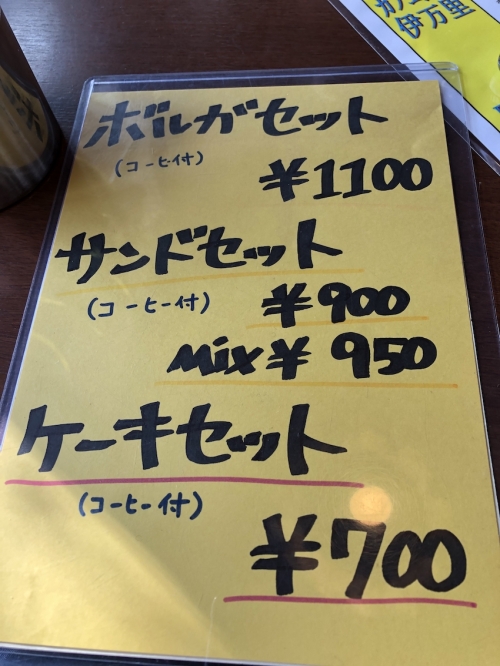 ボルガセット
(コーヒー付)
¥1100
サンドセット
(コーヒー付)
¥900
Mix¥ 950
ケーキセット
(コーヒー付)
¥700
伊万里